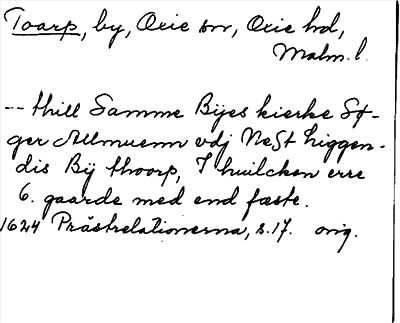 Toarp, by, Oxie sn, Oxie hd,
Malm. l.
-- thill Samme Byes kierke Sø-
ger Allmuenn vdj Nest Liggen-
dis By thoorp, I huilcken erre
6. gaarde med end fæste.
1624 Prästrelationerna, s. 17. orig.